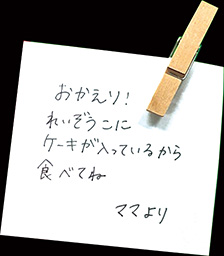 おかえり!
れいぞうこに
ケーキが入っているから
食べてね
ママより